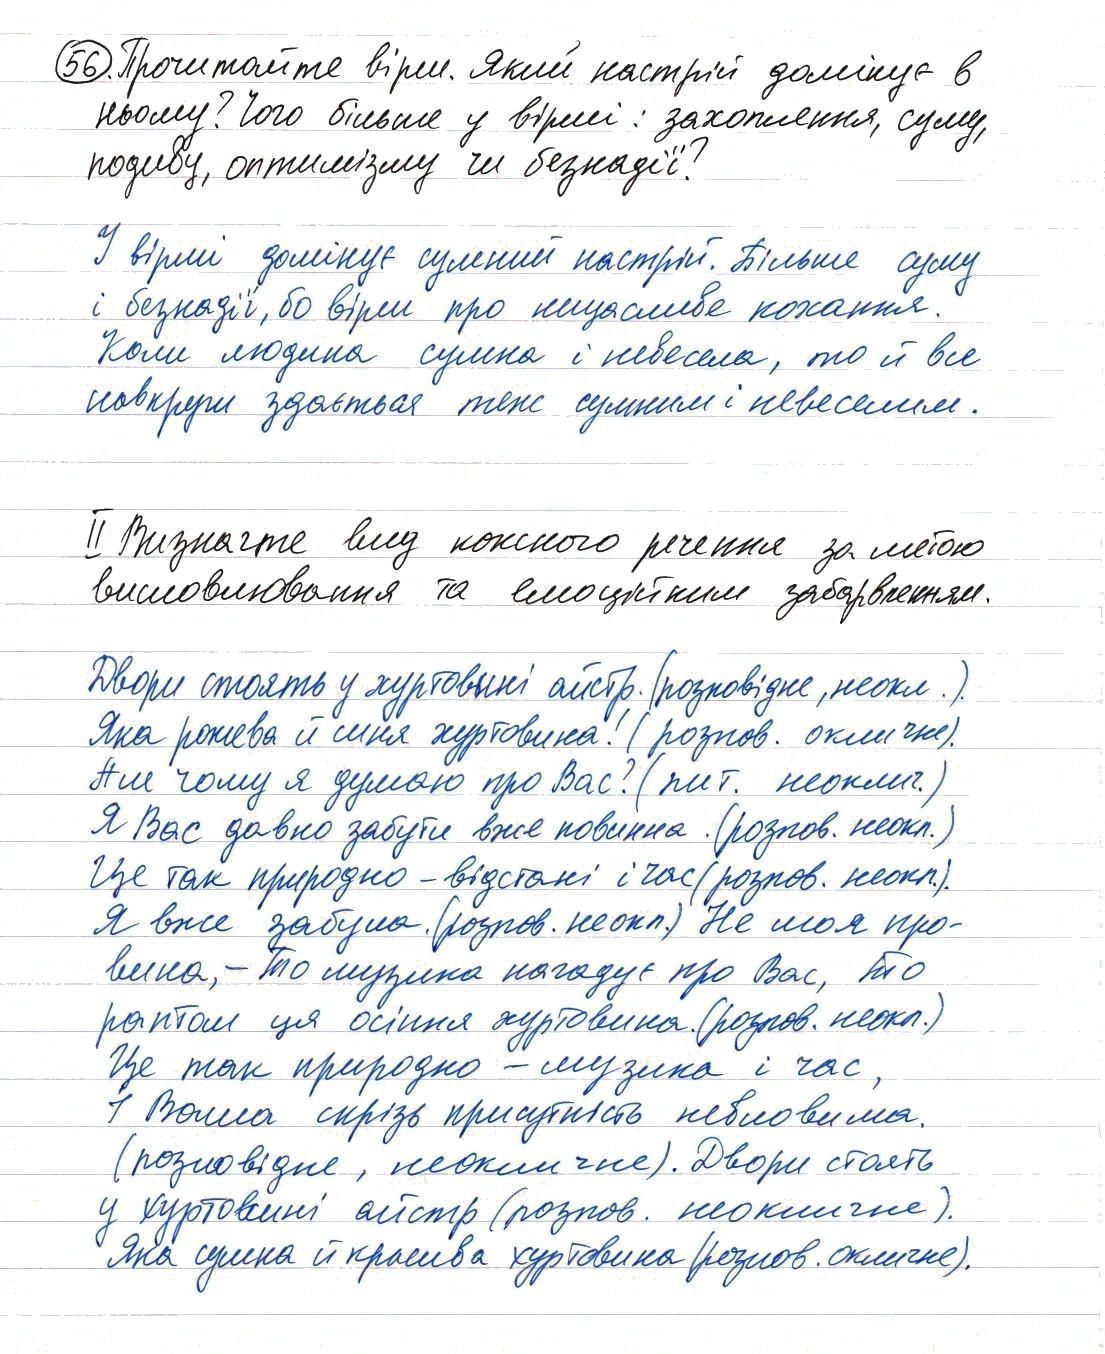 56. Прочитайте вірш. Який настрій домінує в
ньому? Чого більше у вірші: захоплення, суму,
подиву, оптимізму чи безнадії?
У вірші домінує сумний настрій. Більше суму
і безнадії, бо вірш про нещасливе кохання.
Коли людина сумна і невесела, то й все
навкруги здається теж сумним і невеселим.
II Визначте вид кожного речення за метою
висловлювання та емоційним забарвленням.
Двори стоять у хуртовині айстр. (розповідне, неокл.).
Яка рожева й синя хуртовина! (розпов. окличне).
Але чому я думаю про Вас? (пит. неоклич.)
Я Вас давно забути вже повинна. (розпов. неокл.)
Це так природно – відстані і час (розпов. неокл.).
Я вже забула. (розпов. неокл.) Не моя про-
вина, – То музика нагадує про Вас, То
раптом ця осіння хуртовина. (розпов. неокл.)
Це так природно – музика і час,
І Ваша скрізь присутність невловима.
(розповідне, неокличне). Двори стоять
у хуртовині айстр (розпов. неокличне).
Яка сумна й красива хуртовина (розпов. окличне).